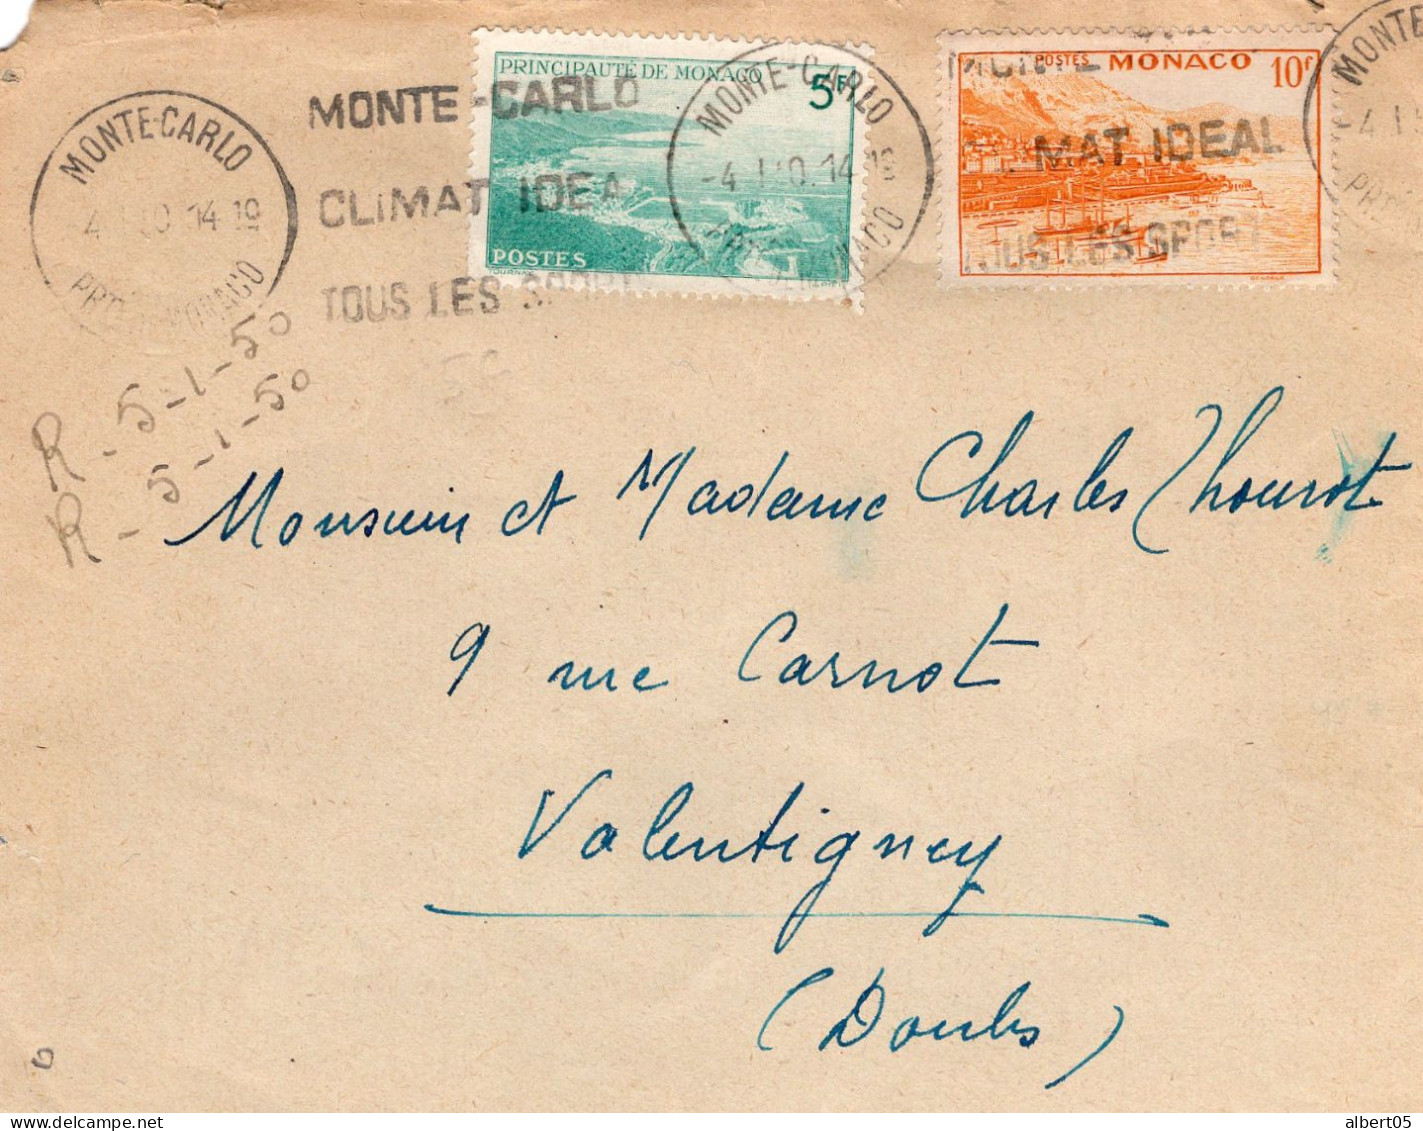 MONTE-CARLO
4 I 50 14 19
PRTÉ DE MONACO
MONTE-CARLO
CLIMAT IDEA
TOUS LES SPORT
PRINCIPAUTÉ DE MONACO
5F
POSTES
MONTE-CARLO
-4 I 50. 14 19
MONACO
POSTES MONACO 10F
MONTE
MAT IDEAL
TOUS LES SPORT
MONTE
-4 I
R-5-1-50
R-5-1-50
Monsieur et Madame Charles Thourot
9 rue Carnot
Valentigney
(Doubs)
albert05